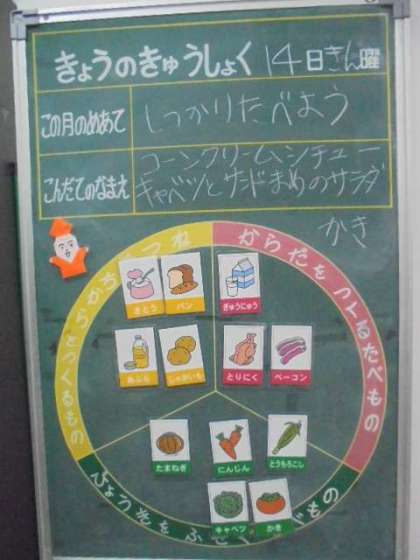 きょうのきゅうしょく 14日きん曜
この月のめあて しっかりたべよう
こんだてのなまえ コーンクリームシチュー
キャベツとサラドまめのサラダ
かき
からだをつくるたべもの
さとう
パン
ぎゅうにゅう
あぶら
じゃがいも
とりにく
ベーコン
たまねぎ
にんじん
とうもろこし
キャベツ
かき